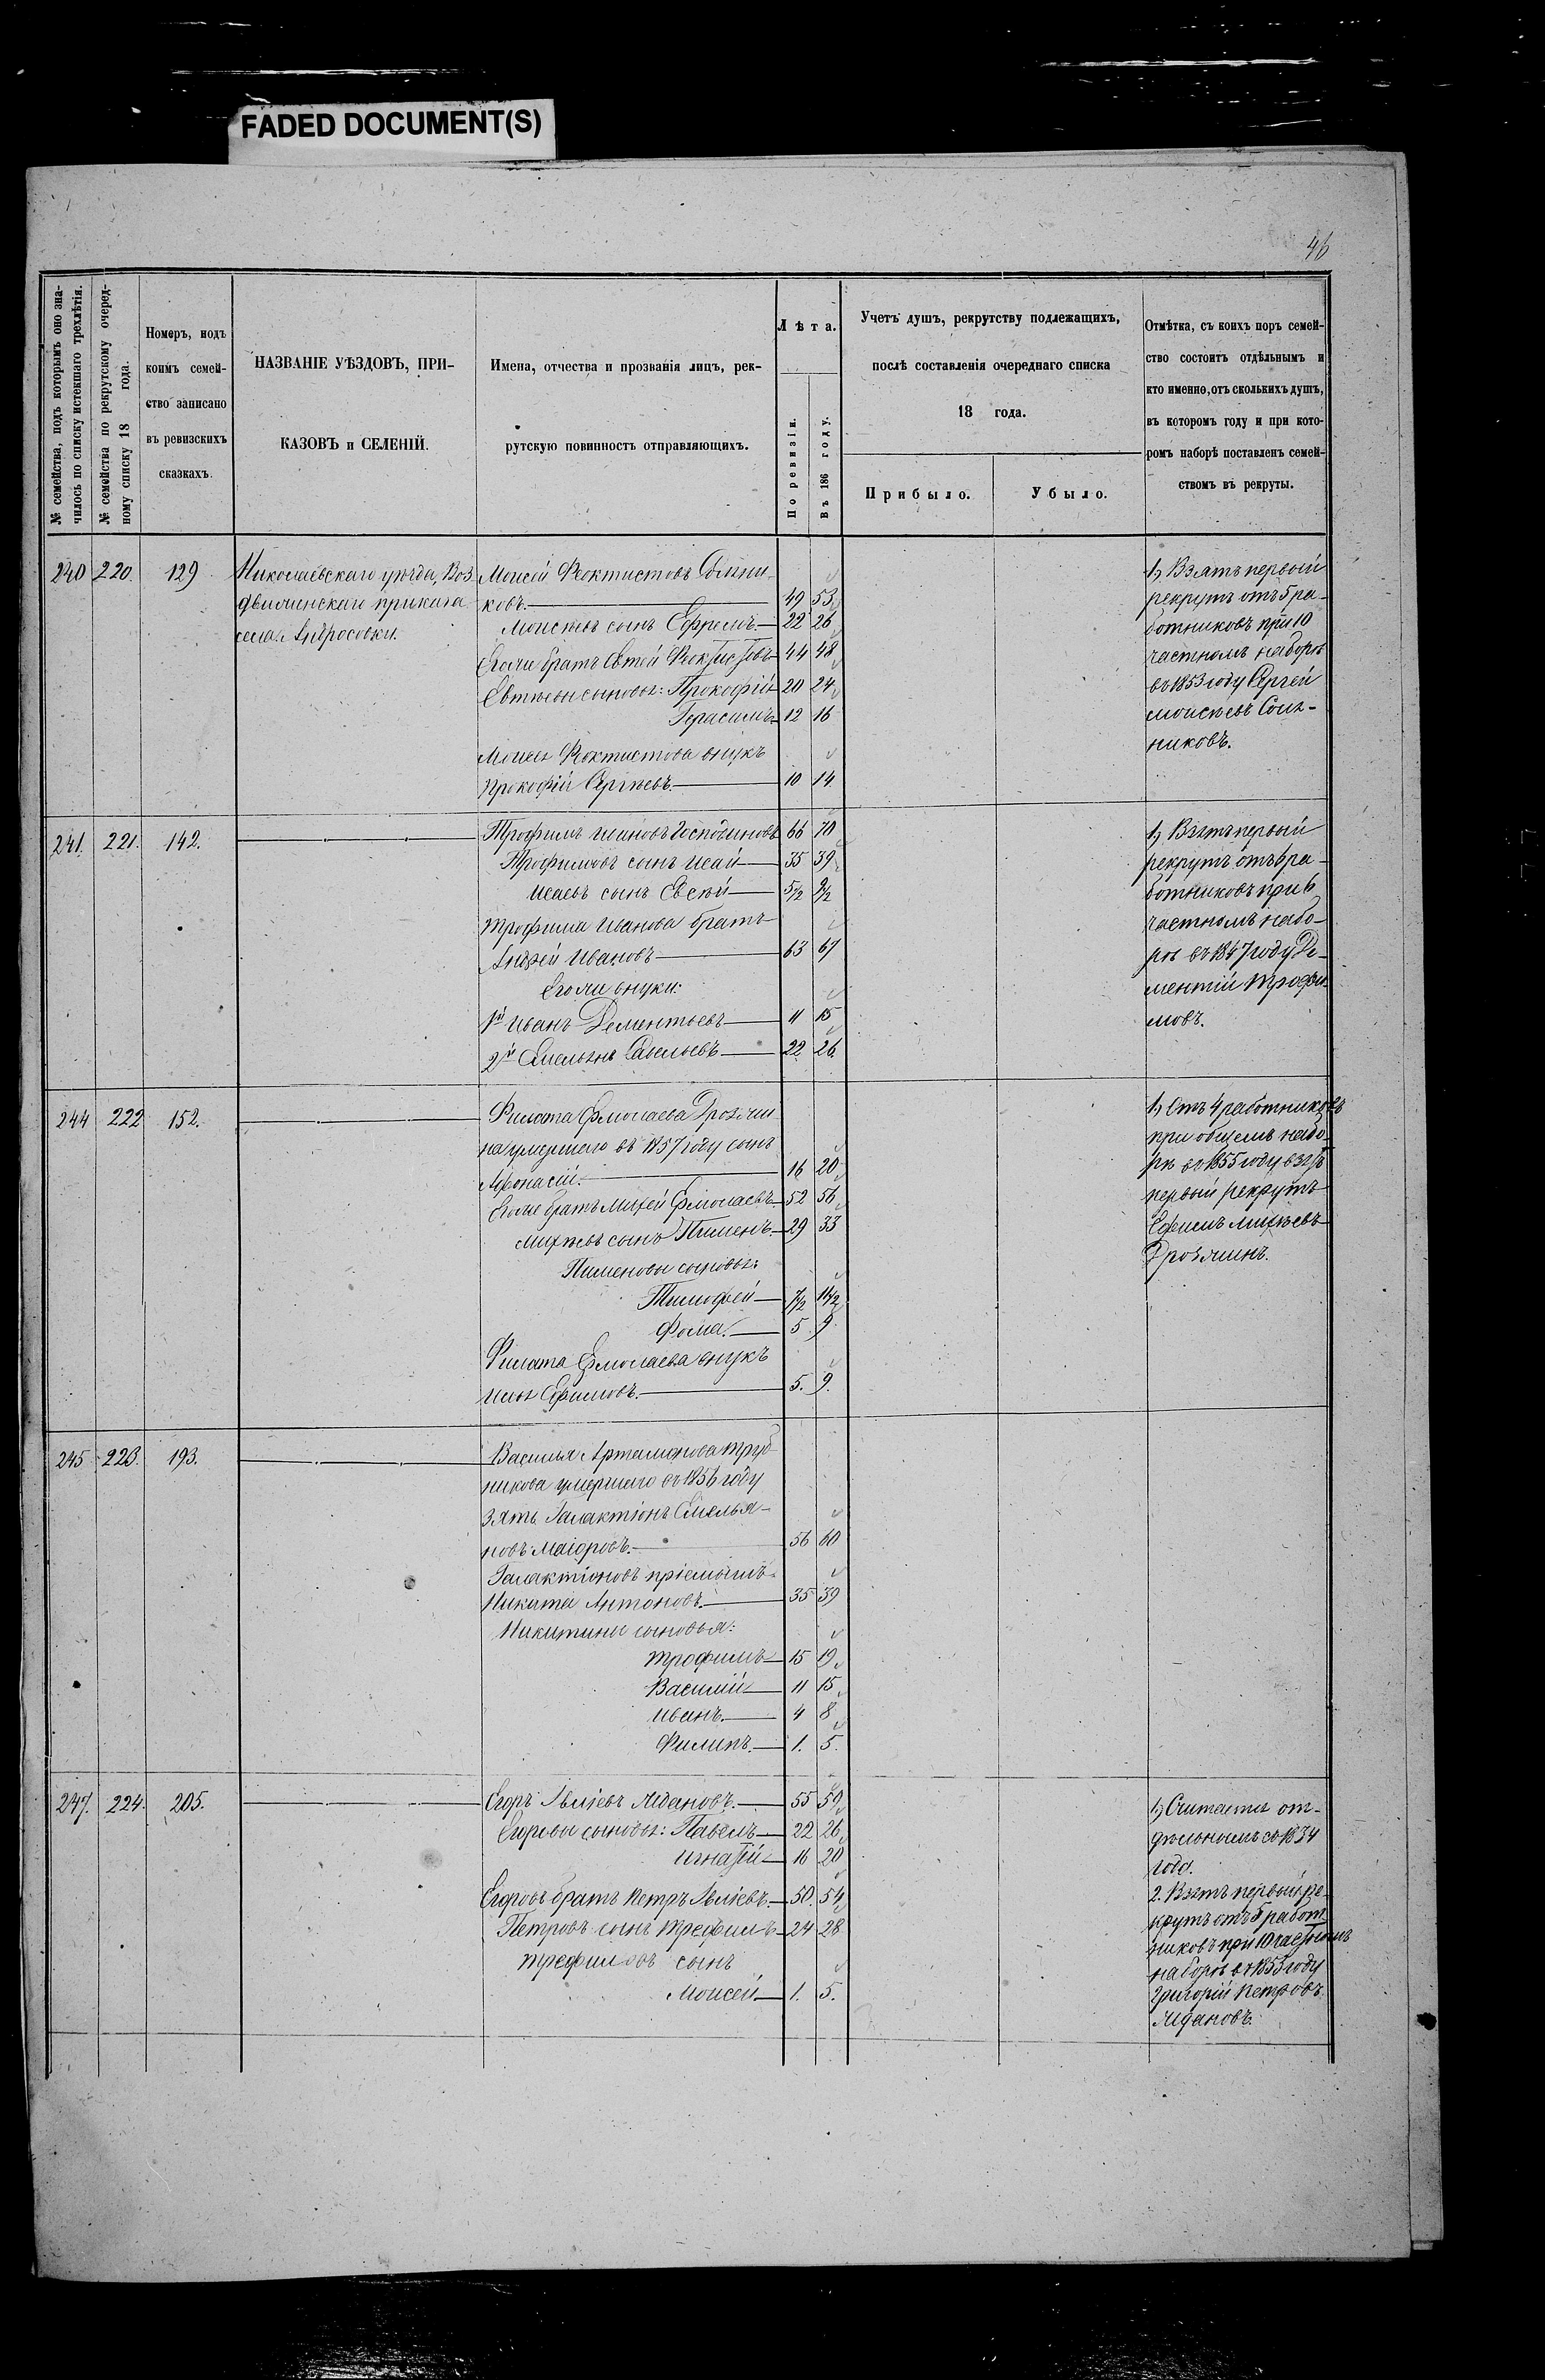 FADED DOCUMENT(S)
46
№ семейства, подъ которымъ оно зна-
чилось по списку истекшаго трехлѣтія.
№ семейства по рекрутскому очеред-
ному списку 18 года.
Номеръ, подъ
коимъ семей-
ство записано
въ ревизскихъ
сказкахъ.
НАЗВАНІЕ УѢЗДОВЪ, ПРИ-
КАЗОВЪ и СЕЛЕНІЙ.
Имена, отчества и прозванія лицъ, рек-
рутскую повинность отправляющихъ.
Лѣта.
По ревизіи.
Въ 186 году.
Учетъ душъ, рекрутству подлежащихъ,
послѣ составленія очереднаго списка
18 года.
Прибыло.
Убыло.
Отмѣтка, съ коихъ поръ семей-
ство состоитъ отдѣльнымъ и
кто именно, отъ сколькихъ душъ,
въ которомъ году и при кото-
ромъ наборѣ поставленъ семей-
ствомъ въ рекруты.
240 220. 129
Николаевскаго уѣзда, Воз
движенскаго приказа
села Андросовки.
Моисей Феоктистовъ
ковъ. 49 53
Моисѣевъ сынъ Ефремъ. 22 26
Егоже братъ Евтей Феоктистовъ 44 48
Евтѣевы сыновья: Прокофій 20 24
Герасимъ 12 16
Моисея Феоктистова внукъ
Прокофій Сергѣевъ. 10 14
1, Взятъ первый
рекрутъ отъ 5 ра-
ботниковъ при 10
частномъ наборѣ
въ 1853 году Сергей
Моисѣевъ
никовъ.
241. 221. 142.
Трофимъ Ивановъ Господиновъ 66 70
Трофимовъ сынъ Исай 35 39
Исаевъ сынъ Евсѣй 5/2 9/2
Трофима Иванова братъ
Андрей Ивановъ 63 67
Егоже внуки:
1й Иванъ Дементьевъ 11 15
2й Емельянъ Савельевъ 22 26
1, Взятъ первый
рекрутъ отъ 6 ра-
ботниковъ при 6
частномъ набо-
рѣ въ 1847 году Де-
ментій Трофи-
мовъ.
244 222 152.
Филата Ермолаева Дрозжи
на умершаго въ 1857 году сынъ
Афонасій. 16 20
Егоже братъ Михей Ермолаевъ 52 56
Михѣевъ сынъ Пименъ. 29 33
Пименовы сыновья:
Тимофей 7/2 11/2
Фома. 5 9
Филата Ермолаева внукъ
Илья Ефимовъ. 5. 9.
1, Отъ 4 работниковъ
при общемъ набо
рѣ въ 1855 году взятъ
первый рекрутъ
Ефимъ Михѣевъ
Дрозжинъ.
245 223. 193.
Василья Артамонова Труб
никова умершаго въ 1856 году
Зять Галактіонъ Емелья-
новъ Маіоровъ. 56 60
Галактіоновъ пріемышъ
Никита Антоновъ. 35 39
Никитины сыновья:
Трофимъ 15 19
Василій 11 15
Иванъ. 4 8
Филипъ. 1. 5.
247. 224. 205.
Егоръ Ждановъ. 55 59
Егоровы сыновья: Павелъ 22 26
Игнатій 16 20
Егоровъ братъ Петръ 50. 54
Петровъ сынъ Трефилъ 24 28
Трефиловъ сынъ
Моисей. 1. 5.
1, Считается от-
дѣльнымъ съ 1834
года.
2. Взятъ первый ре-
крутъ отъ 5 работ
никовъ при 10 частномъ
наборѣ въ 1853 году
Григорій Петровъ
Ждановъ.